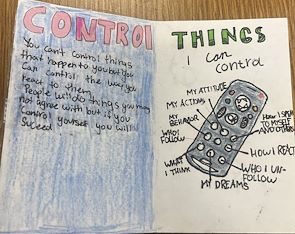 CONTROL
You can't control things
that happen to you but you
can control the way you
react to them.
People will do things you may
not agree with but is you
control yourself you will
Suceed
THINGS
I can
control
MY ATTITUDE
MY ACTIONS
MY
BEHAVIOR
WHO I
FOLLOW
WHAT
I THINK
MY DREAMS
HOW I SPEAK
TO MYSELF
AND OTHERS
HOW I REACT
WHO I UN-
FOLLOW